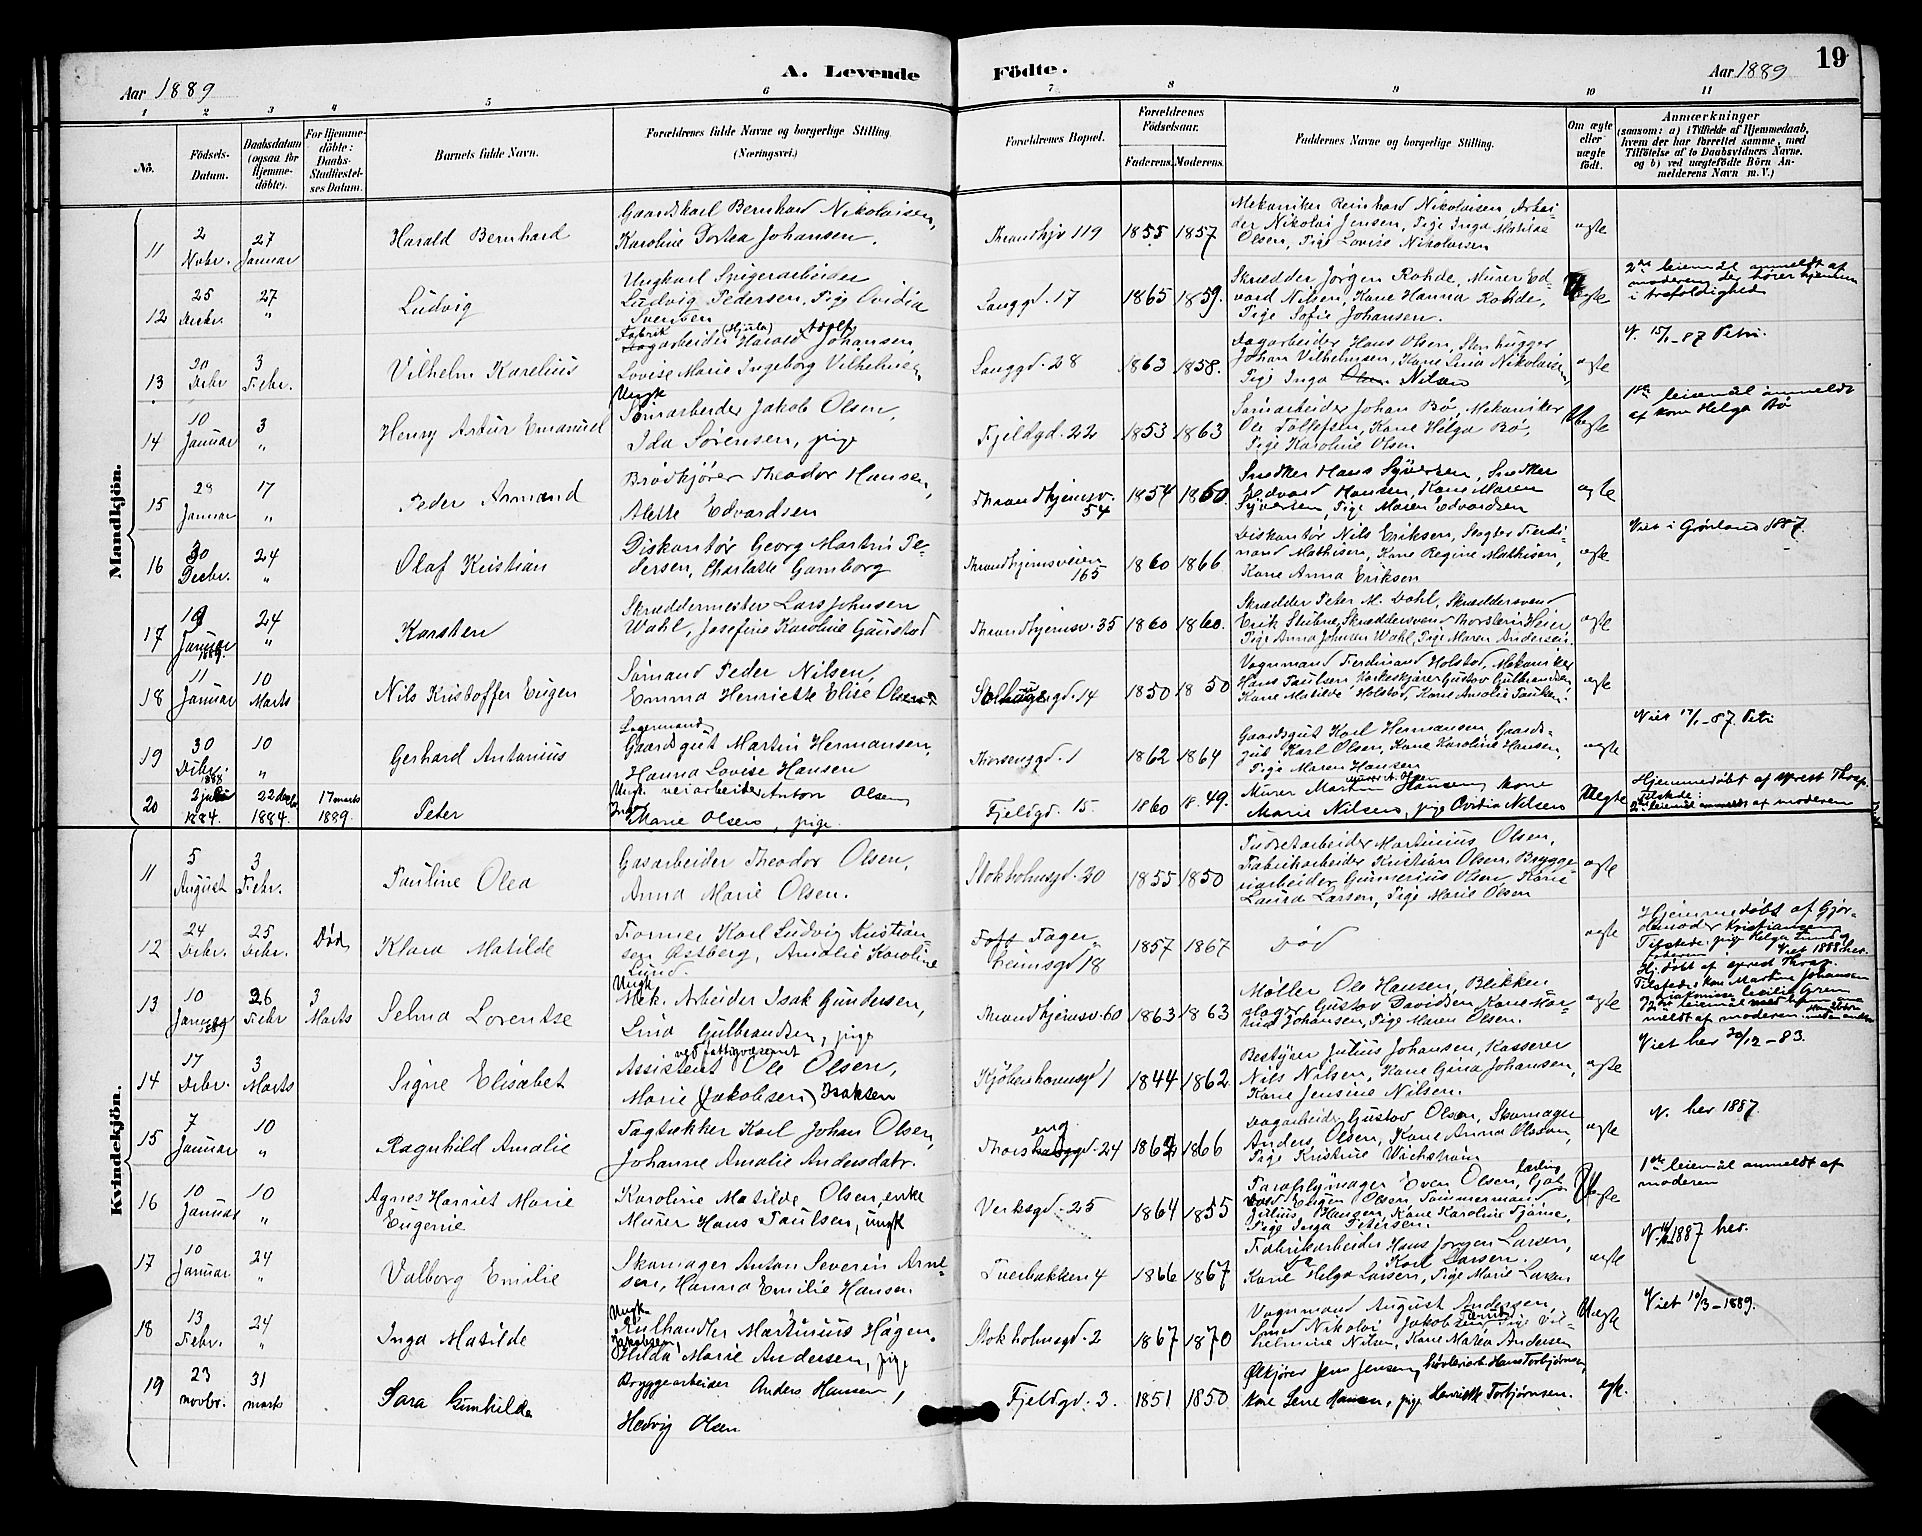 A. Levende Födte.
19
Aar 1889
Aar 1889
1 2 3 4 5 6 7 8 9 10 11
No.
Födsels-
Datum.
Daabsdatum
(ogsaa for
Hjemme-
döbte).
For Hjemme-
döbte:
Daabs-
Stadfæstel-
ses Datum.
Barnets fulde Navn.
Forældrenes fulde Navne og borgerlige Stilling.
(Næringsvei.)
Forældrenes Bopæl.
Forældrenes
Födselsaar.
Faderens. Moderens.
Faddernes Navne og borgerlige Stilling.
Om ægte
eller
uægte
födt.
Anmærkninger
(saasom: a) i Tilfælde af Hjemmedaab,
hvem der har forrettet samme, med
Tilföielse af to Daabsvidners Navne.
og b) ved uægtefödte Börn An-
melderens Navn m. V.)
Mandkjön.
11
2
Novbr.
27
Januar
Harald Bernhard
Gaardskarl Bernhard Nikolaisen,
Karoline Dortea Johansen.
Throndhjv 119
1855 1857
Mekaniker Reinhard Nikolaisen, Arbei-
der Nikolai Jensen, Pige Inga Matilde
Olsen, Pige Lovise Nikolaisen
ægte
12
25
Decbr.
27
"
Ludvig
Ungkarl Spigerarbeider
Ludvig Pedersen, Pige Ovidia
Svensen
Langgd. 17
1865 1859.
Skrædder Jörgen Rohde, Murer Ed-
vard Nilsen, Kone Hanna Rohde,
Pige Sofie Johansen.
Uægte
2det leiemål anmeldt af
moderen der hører hjemme
i trefoldighed
13
30
Decbr
3
Febr.
Vilhelm Karelius
Fabrik (Hjula) Adolf
arbeider Harald Johansen
Lovise Marie Ingeborg Vilhelmsen
Langgd. 28
1863 1858.
Dagarbeider Hans Olsen, Stenhugger
Johan Vilhelmsen, Kone Lina Nikolaisen,
Pige Inga Nilsen
ægte
V. 15/1 - 87 Petri.
14
10
Januar
3
"
Henry Artur Emanuel
Ungk
Sömarbeider Jakob Olsen,
Ida Sørensen, pige
Fjeldgd. 22
1853 1863
Sömarbeider Johan Bø, Mekaniker
Ole Tollefsen, Kone Helga Bø,
Pige Karoline Olsen
Uægte
1ste leiemål anmeldt
af kone Helga Bø
15
28
Januar
17
"
Peder Armand
Brödkjörer Theodor Hansen,
Alette Edvardsen
Throndhjemsv.
54
1854 1860.
Snedker Hans Syversen, Snedker
Edvard Hansen, Kone Maren
Syversen, Pige Maren Edvardsen
ægte
16
30
Decbr.
24
"
Olaf Kristian
Diskantör Georg Martin Pe-
dersen, Charlotte Gamborg
Throndhjemsveien
165
1860 1866
Diskantör Nils Eriksen, Slagter Ferdi-
nand Mathisen, Kone Regine Mathisen,
Kone Anna Eriksen
ægte
Viet i Grønland 1887.
17
Januar
1889.
24
"
Karsten
Skræddermester Lars Johnsen
Wahl, Josefine Karoline Gaustad
Throndhjemsv. 35
1860 1860.
Skrædder Peter M. Dahl, Skræddersvend
Erik Stubne, Skræddersvend Thorstein Heier
Pige Anna Johnsen Wahl, Pige Maren Andersen.
ægte
18
11
Januar
10
Marts
Nils Kristoffer Eugen
Sömand Peder Nilsen,
Emma Henriette Elise Olsen
gd. 14
1850 1850
Vognmand Ferdinand Holstad, Mekaniker
Hans Paulsen, Gustav Gulbrandsen,
Kone Matilde Holstad, Kone Amalie Paulsen.
ægte
19
30
Decbr.
1888
10
"
Gerhard Antonius
Lagermand
Gaardsgut Martin Hermansen,
Hanna Lovise Hansen
Korsengd. 1
1862 1864
Gaardsgut Karl Hermansen, Gaards-
gut Karl Olsen, Kone Karoline Hansen,
Pige Maren Hansen
ægte
Viet 17/1 - 87. Petri
20
2 juli
1884.
22
1884.
17 marts
1889.
Peter
Ungk. veiarbeider Anton Olsen
Marie Olsen, pige.
Fjeldgd. 15
1860 18.49.
Murer Martin Hansen, kone
Marie Nilsen, pige Ovidia Nilsen
Uægte
Hjemmedöbt af prest Thrap.
Tilstede:
2det leiemål anmeldt af moderen
Kvindekjön.
11
5
August
3
Febr.
Pauline Olea
Gasarbeider Theodor Olsen,
Anna Marie Olsen.
Stokholmsgd. 20
1855 1850
Pudretarbeider Martinius Olsen,
Fabrikarbeider Kristian Olsen, Brygge-
riarbeider Gunnerius Olsen, Kone
Laura Larsen, Pige Marie Olsen
ægte
12
24
Decbr.
25
Decbr.
Död
Klara Matilde
Former Karl Ludvig Kristian-
sen Østberg, Amalie Karoline
Lund.
Fager-
heimsgd 18
1857 1867
Död
ægte
Hjemmedöbt af Gjor-
demoder Kristiansen
Tilstede, pige Helga Lund og
faderen. Viet 1888 her.
13
10
Januar
1889
26
Febr
3
Marts
Selma Lorentse
Ungk
Mek. Arbeider Isak Gundersen,
Lina Gulbrandsen, pige
Throndhjemsv. 60
1863 1863
Møller Ole Hansen, Blikken-
slager Gustav Davidsen, Kone Mar-
Johansen, Pige Maren Olsen.
ægte
Hj. döbt af prest Thrap.
Tilstede, Kone Martine Johansen
Diakonisse Cecilie Grem
14
17
Decbr.
3
Marts
Signe Elisabet
ved fattigvæsenet
Assistent Ole Olsen,
Marie (Jakobsen) Isaksen
Kjöbenhavnsgd 1
1844 1862
Bestyrer Julius Johansen, Kasserer
Nils Nilsen, Kone Gina Johansen,
Kone Jensine Nilsen.
ægte
Viet her 20/12 - 83.
15
7
Januar
10
"
Ragnhild Amalie
Tagtækker Karl Johan Olsen,
Johanne Amalie Andersdatr.
eng
Thorshauggd. 24
1862 1866
Dagarbeider Gustav Olsen, Skomager
Anders Olsen, Kone Anna Olsson,
Pige Kristine Wichstrøm
ægte
V. her 1887.
16
10
Januar
10
"
Agnes Harriet Marie
Eugenie
Karoline Matilde Olsen, enke
Murer Hans Paulsen, ungk
Verksgd. 25
1864 1855
Paraplymager Even Olsen,
Eugen Olsen, Tömmermand
Julius Hansen, Kone Karoline Fjørne,
Pige Inga Petersen.
Uægte
1ste leiemål anmeldt af
moderen
17
10
Januar
24
"
Valborg Emilie
Skomager Anton Severin Arne-
sen, Hanna Emilie Hansen.
Tverbakken 4
1866 1867
Fabrikarbeider Hans Jørgen Larsen,
Do Karl Larsen.
Kone Helga Larsen, Pige Marie Larsen
ægte
1887 her.
18
13
Febr.
24
"
Inga Matilde
Ungk.
Kulhandler Martinius Hagen.
Jakobsen
Hilda Marie Andersen, pige
Stokholmsgd. 2
1867 1870
Vognmand August Andersen,
Smed Nikolai Jakobsen, Pige Vil-
helmine Nilsen, Kone Matea Andersen
Uægte
Viet 10/3 - 1889.
19
23
novbr.
31
marts
Sara Gunhilda
Bryggearbeider Anders Hansen,
Hedvig Olsen
Fjeldgd. 3.
1851 1850
Ølkjører Jens Jensen, høvleriarb. Hans Torbjørnsen,
kone Lene Hansen, pige Henriette Torbjørnsen.
egte.